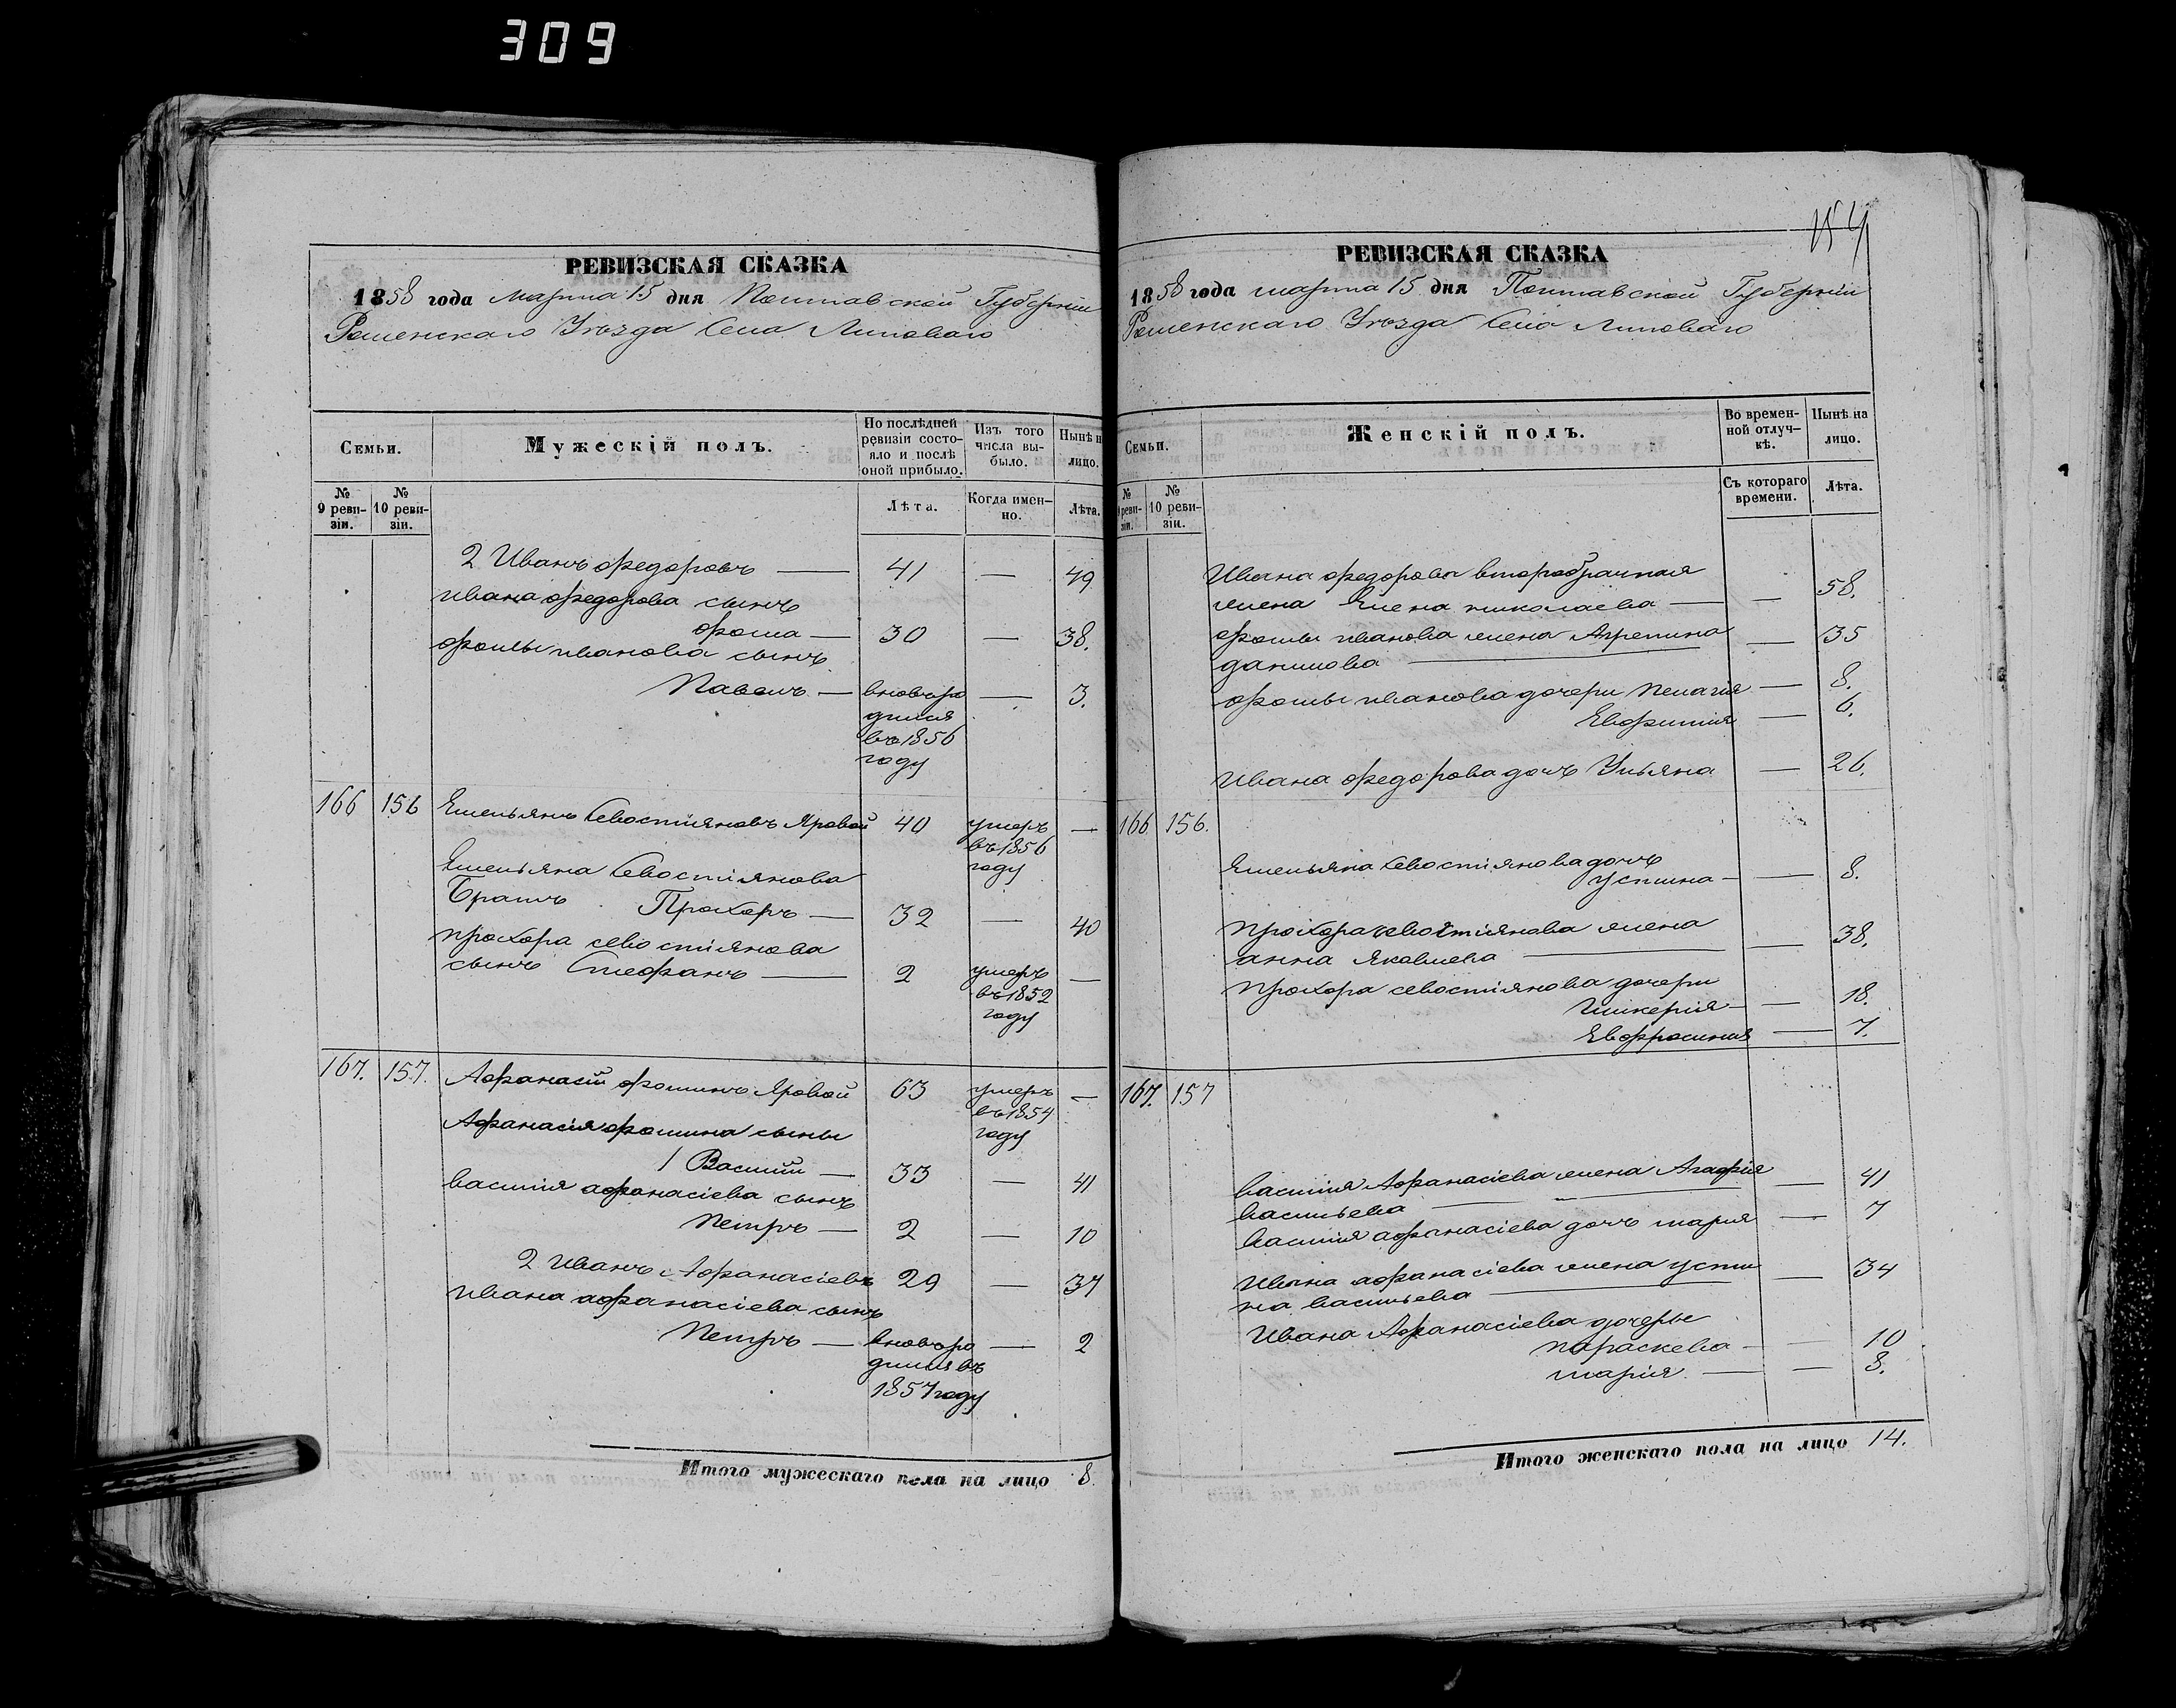 309
РЕВИЗСКАЯ СКАЗКА
1858 года марта 15 дня Полтавской Губерніи
Роменскаго Уѣзда Села Липоваго
Семьи.
Мужескій полъ.
По послѣдней ревизіи состояло и послѣ оной прибыло.
Изъ того числа выбыло.
Нынѣ н лицо.
№ 9 ревизіи.
№ 10 ревизіи.
Лѣта.
Когда именно.
Лѣта.
2 Иванъ федоровъ — 41 — 49
ивана федорова сынъ
фома — 30 — 38.
фомы иванова сынъ
Павелъ — вновь ро — 3.
дился
въ 1856
году
166 156 Емельянъ Севостіяновъ Яровой 40 умеръ —
въ 1856
году
Емельяна Севостіянова
Братъ Прохоръ — 32 — 40
прохора севостіянова
сынъ Стефанъ — 2 умеръ —
въ 1852
году
167. 157. Афанасій фоминъ Яровой 63 умеръ —
въ 1854
году
Афанасія фомина сыны
1 Василій — 33 — 41
василія афанасіева сынъ
Петръ — 2 — 10
2 Иванъ Афанасіевъ 29 — 37
ивана афанасіева сынъ
Петръ — вновь ро — 2
дился въ
1857 году
Итого мужескаго пола на лицо 8.
154
РЕВИЗСКАЯ СКАЗКА
1858 года марта 15 дня Полтавской Губерніи
Роменскаго Уѣзда Села Липоваго
Семьи.
Женскій полъ.
Во временной отлучкѣ.
Нынѣ на лицо.
№ 9 ревизіи.
№ 10 ревизіи.
Съ котораго времени.
Лѣта.
Ивана федорова второбрачная
жена Елена николаева — — 58.
фомы иванова жена Агрепина — 35
данилова —
фомы иванова дочери Пелагія — 8.
Евфимія — 6.
Ивана федорова дочь Ульяна — 26.
166 156.
Емельяна Севостіянова дочь
Устина — — 8.
прохора севостіянова жена
анна Яковлева — — 38.
прохора севостіянова дочери
Гликерія — — 18.
Евфросинія — 7.
167. 157
Василія Афанасіева жена Агафія — 41
васильева —
василія афанасіева дочь марія — 7
Ивана афанасіева жена усти — 34
на васильева —
Ивана Афанасіева дочеры
параскева — — 10
марія — — 8.
Итого женскаго пола на лицо 14.